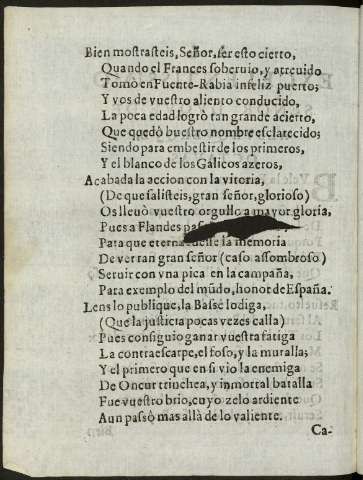 Bien mostrasteis, Señor, ser esto cierto,
Quando el Frances soberuio, y atreuido
Tomò en Fuente-Rabia infeliz puerto;
Y vos de vuestro aliento conducido,
La poca edad logrò tan grande acierto,
Que quedó buestro nombre esclarecido;
Siendo para embestir de los primeros,
Y el blanco de los Galicos azeros,
Acabada la accion con la vitoria,
(De que salisteis, gran señor, glorioso)
Os lleuò vuestro orgullo a mayor gloria,
Pues a Flandes
Para que eterna la memoria
De ver tan gran señor (caso assombroso)
Seruir con vna pica en la campaña,
Para exemplo del mũdo, honor de España.
Lens lo publique, la Basse lo diga,
(Que la justicia pocas vezes calla)
Pues consiguio ganar vuestra fatiga
La contraescarpe, el foso, y la muralla;
Y el primero que en si vio la enemiga
De Oncur trinchea, y inmortal batalla
Fue vuestro brio, cuyo zelo ardiente
Aun passò mas allà de lo valiente.
Ca-